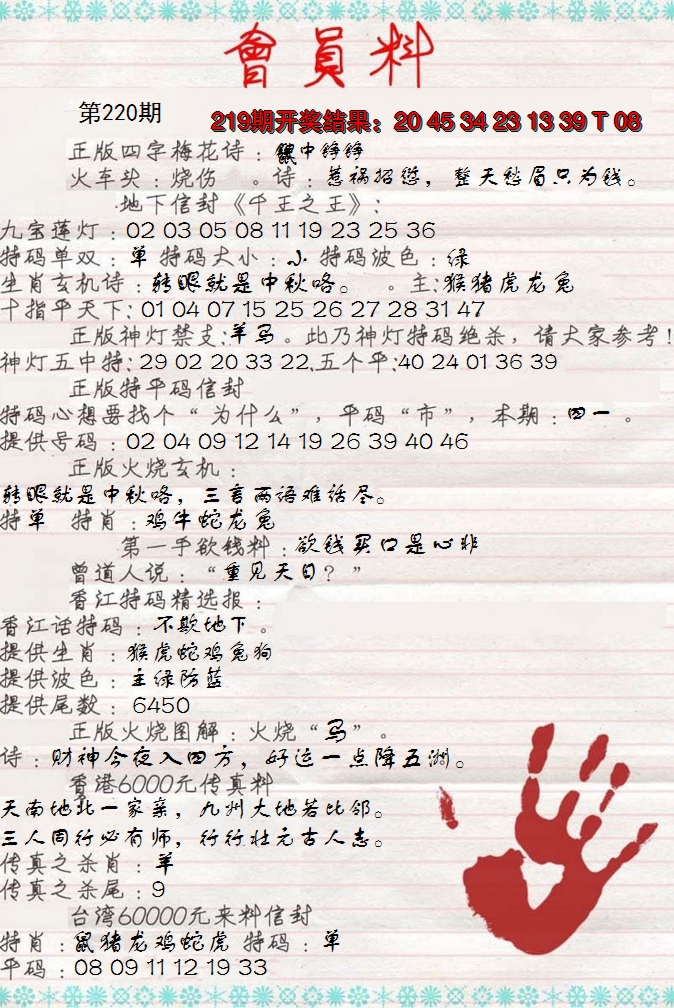 會員料
第220期
219期开奖结果：20 45 34 23 13 39 T 08
正版四字梅花诗：鼠中铮铮
火车头：烧伤 。诗：惹祸招愆，整天愁眉只为钱。
地下信封《千王之王》：
九宝莲灯：02 03 05 08 11 19 23 25 36
特码单双：单 特码大小：小 特码波色：绿
生肖玄机诗：转眼就是中秋咯。 。主：猴猪虎龙兔
十指平天下：01 04 07 15 25 26 27 28 31 47
正版神灯禁支：羊马。此乃神灯特码绝杀，请大家参考！
神灯五中特：29 02 20 33 22.五个平：40 24 01 36 39
正版特平码信封
特码心想要找个“为什么”，平码“市”，本期：四一 。
提供号码：02 04 09 12 14 19 26 39 40 46
正版火烧玄机：
转眼就是中秋咯，三言两语难话尽。
特单 特肖：鸡牛蛇龙兔
第一手欲钱料：欲钱买口是心非
曾道人说：“重见天日？”
香江特码精选报：
香江话特码：不欺地下。
提供生肖：猴虎蛇鸡兔狗
提供波色：主绿防蓝
提供尾数：6450
正版火烧图解：火烧“马”。
诗：财神今夜入四方，好运一点降五洲。
香港6000元传真料
天南地北一家亲，九州大地若比邻。
三人同行必有师，行行壮元古人志。
传真之杀肖：羊
传真之杀尾：9
台湾60000元来料信封
特肖：鼠猪龙鸡蛇虎 特码：单
平码：08 09 11 12 19 33